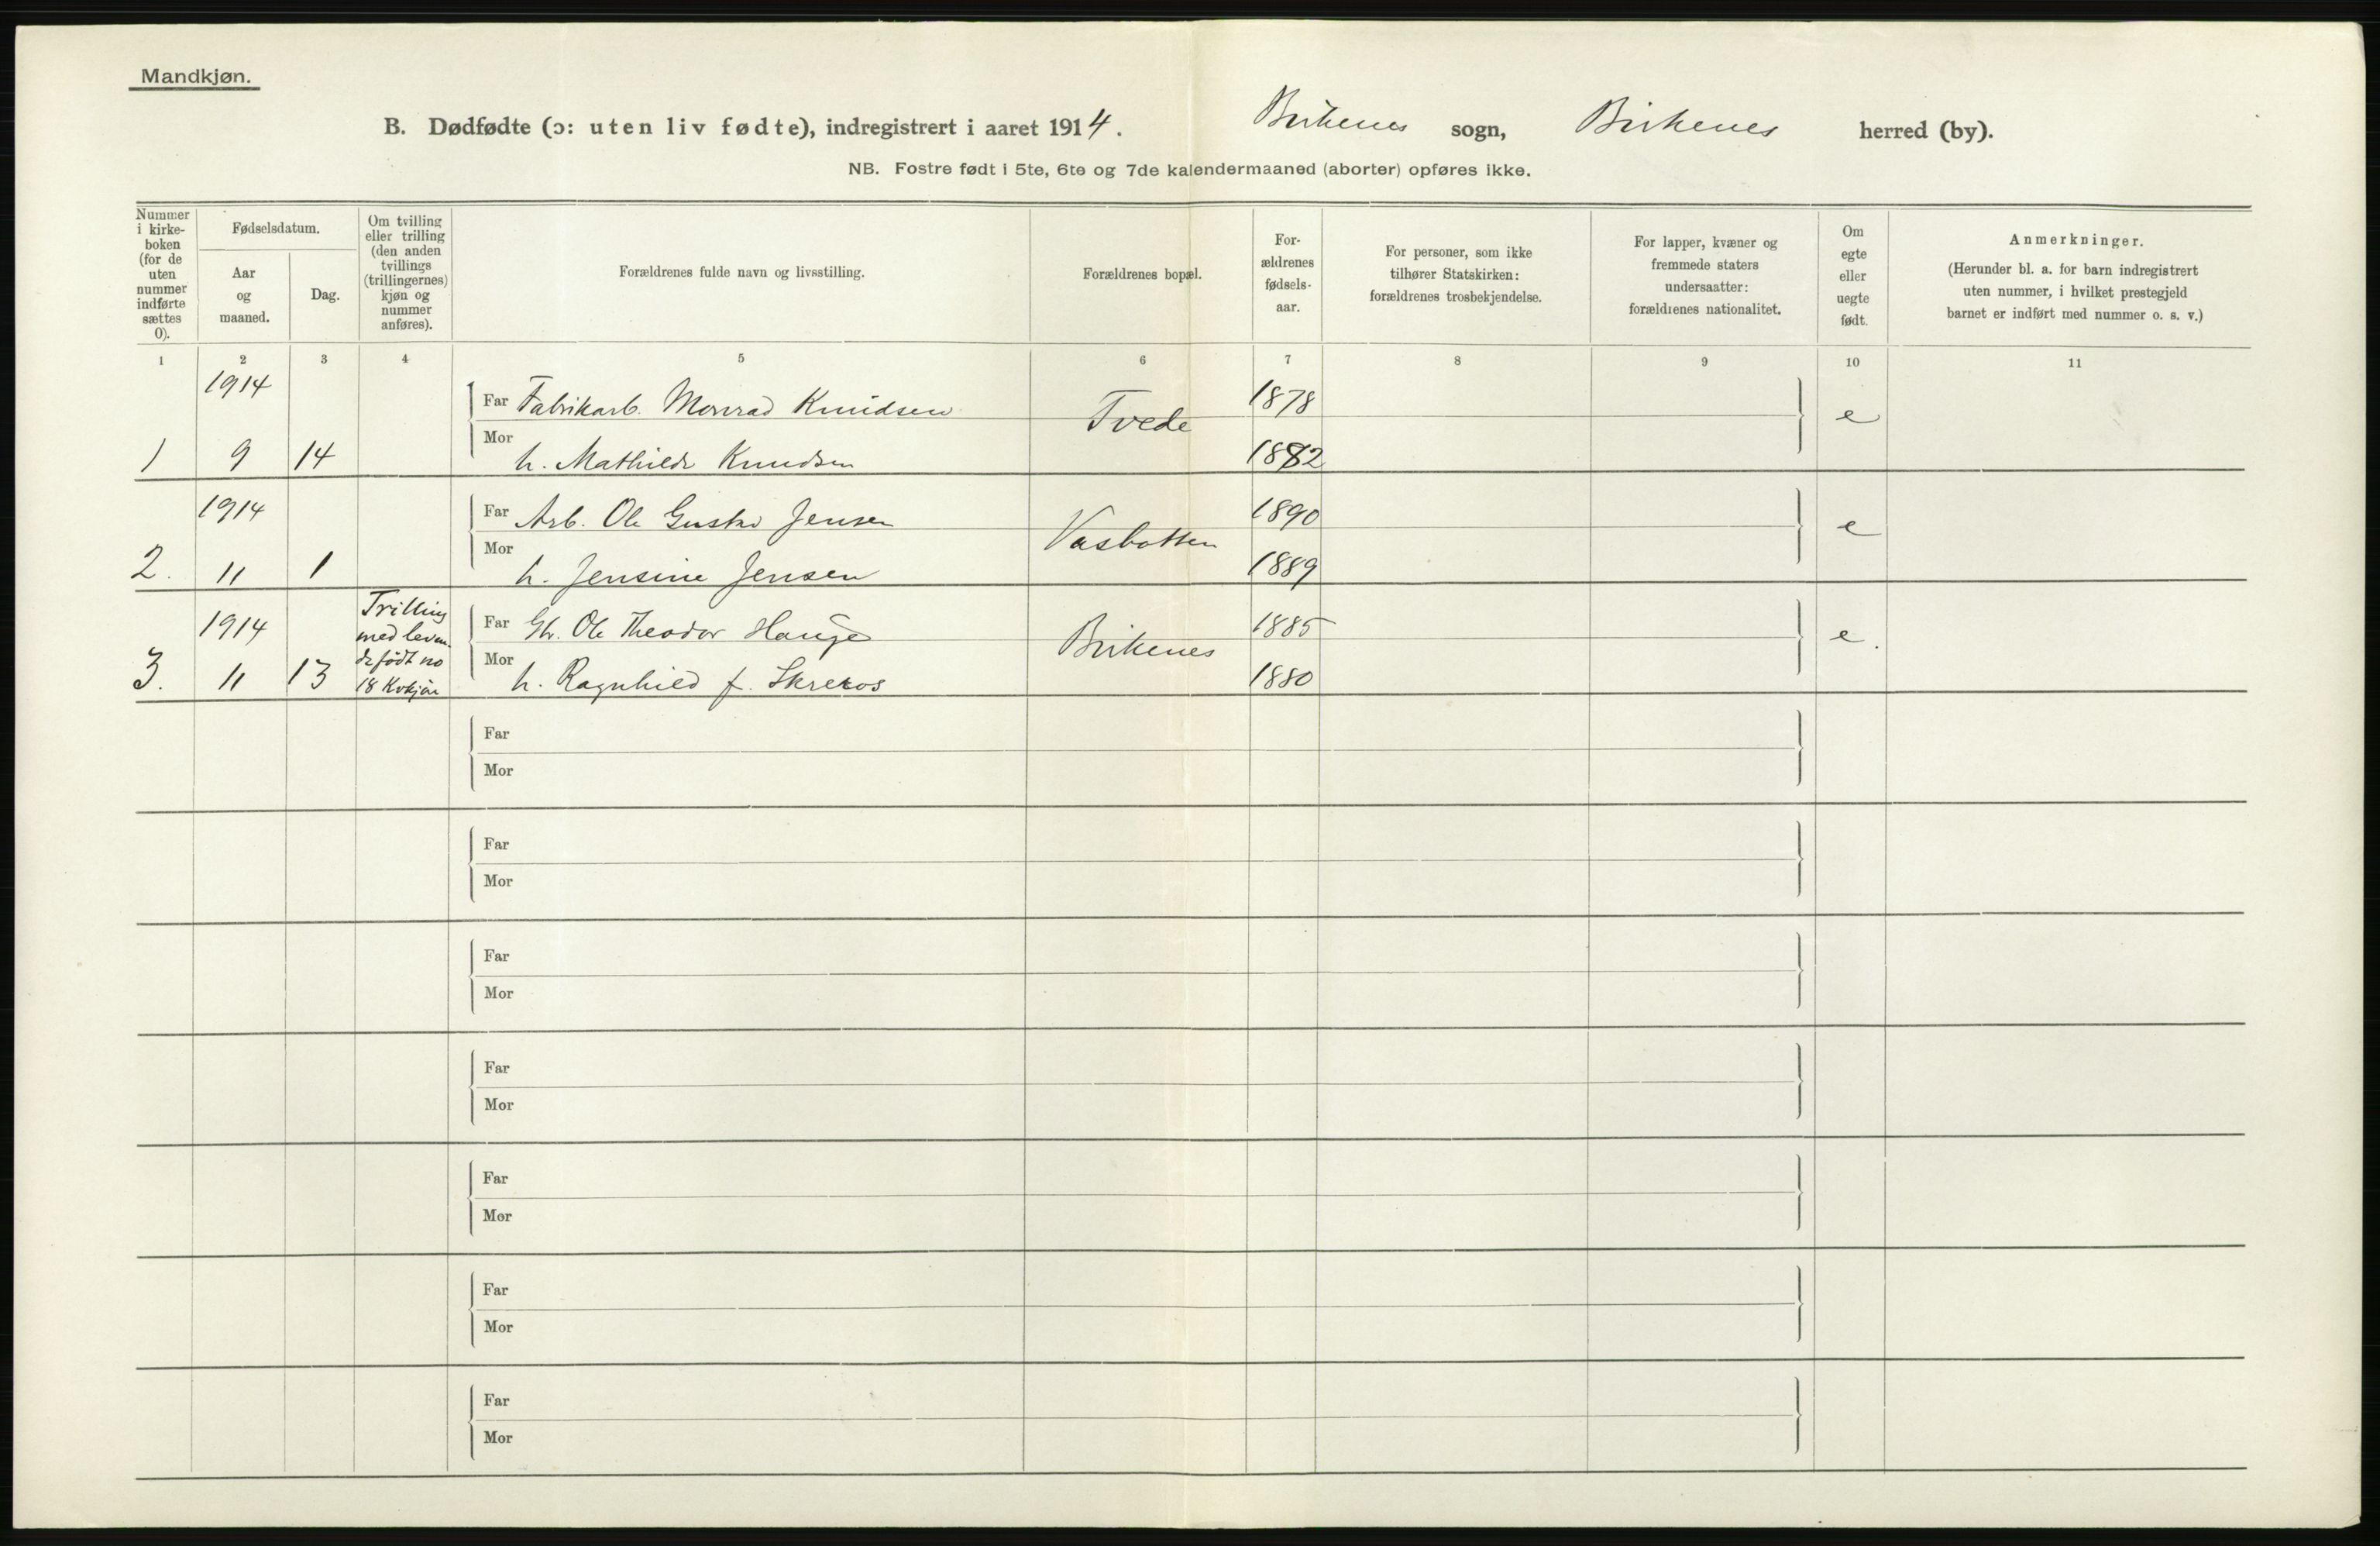 Mandkjøn.
B. Dødfødte (ɔ: uten liv fødte), indregistrert i aaret 1914. Birkenes sogn, Birkenes herred (by).
NB. Fostre født i 5te, 6te og 7de kalendermaaned (aborter) opføres ikke.
Nummer i kirke- boken (for de uten nummer indførte sættes 0).
Fødselsdatum.
Aar og maaned.
Dag.
Om tvilling eller trilling (den anden tvillings (trillingernes) kjøn og nummer anføres).
Forældrenes fulde navn og livsstilling.
Forældrenes bopæl.
For- ældrenes fødsels- aar.
For personer, som ikke tilhører Statskirken: forældrenes trosbekjendelse.
For lapper, kvæner og fremmede staters undersaatter: forældrenes nationalitet.
Om egte eller uegte født.
Anmerkninger.
(Herunder bl. a. for barn indregistrert uten nummer, i hvilket prestegjeld barnet er indført med nummer o. s. v.)
1 2 3 4 5 6 7 8 9 10 11
1914
Far Fabrikarb. Monrad Knudsen Tvede 1878 e
1 9 14 Mor h. Mathilde Knudsen 1882
1914
Far Arb. Ole Gustav Jensen Vasbotten 1890 e
2. 11 1 Mor h. Jensine Jensen 1889
Trilling
1914 med leven-
Far Gbr. Ole Theodor Hauge Birkenes 1885 e.
de født no
3. 11 13 18 Kvkjøn Mor h. Ragnhild f. Skreros 1880
Far
Mor
Far
Mor
Far
Mor
Far
Mor
Far
Mor
Far
Mor
Far
Mor